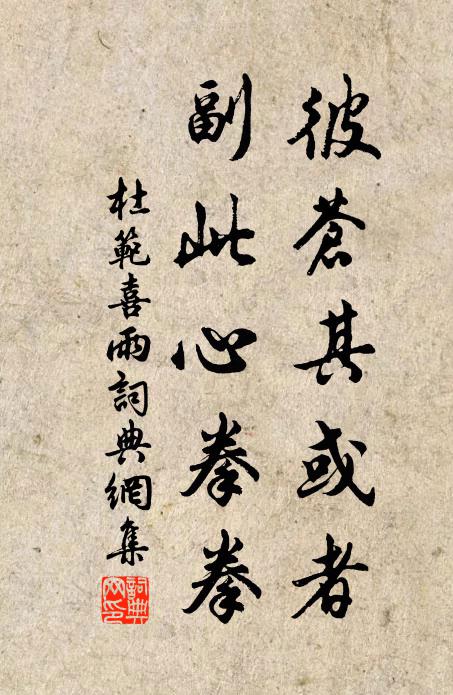 彼蒼其或者
副此心拳拳
杜範喜雨詞典網集
詞典網印